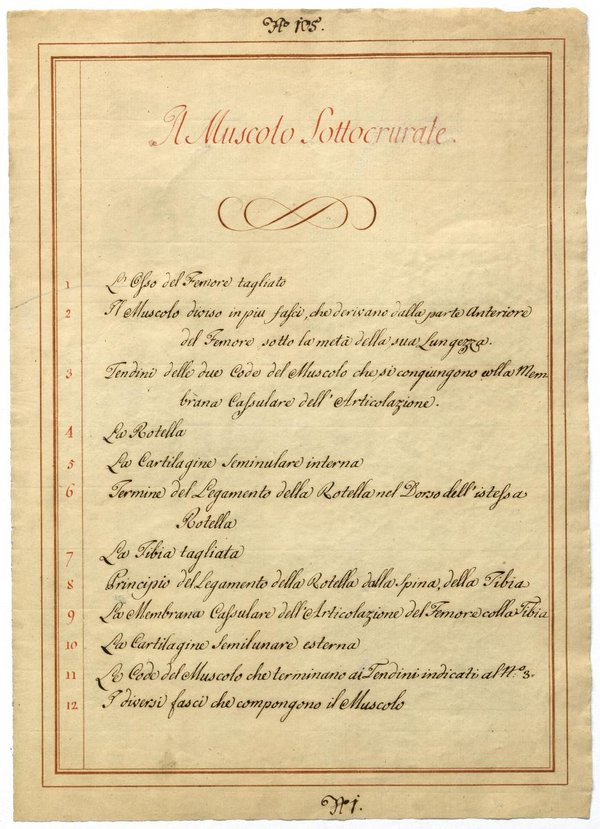 No 105.
Il Muscolo Sottocrurale.
1 L'Osso del Femore tagliato
2 Il Muscolo diviso in piu fasci, che derivano dalla parte Anteriore
del Femore sotto la metà della sua Lungezza.
3 Tendini delle due Code del Muscolo che si congiungono colla Mem-
brana Cassulare dell'Articolazione.
4 La Rotella
5 La Cartilagine Seminulare interna
6 Termine del Legamento della Rotella nel Dorso dell'istessa
Rotella
7 La Tibia tagliata
8 Principio del Legamento della Rotella dalla Spina, della Tibia
9 La Membrana Cassulare dell'Articolazione del Femore colla Tibia
10 La Cartilagine Semilunare esterna
11 Le Code del Muscolo che terminano ai Tendini indicati al N.o 3.
12 I diversi fasci che compongono il Muscolo
No 1.